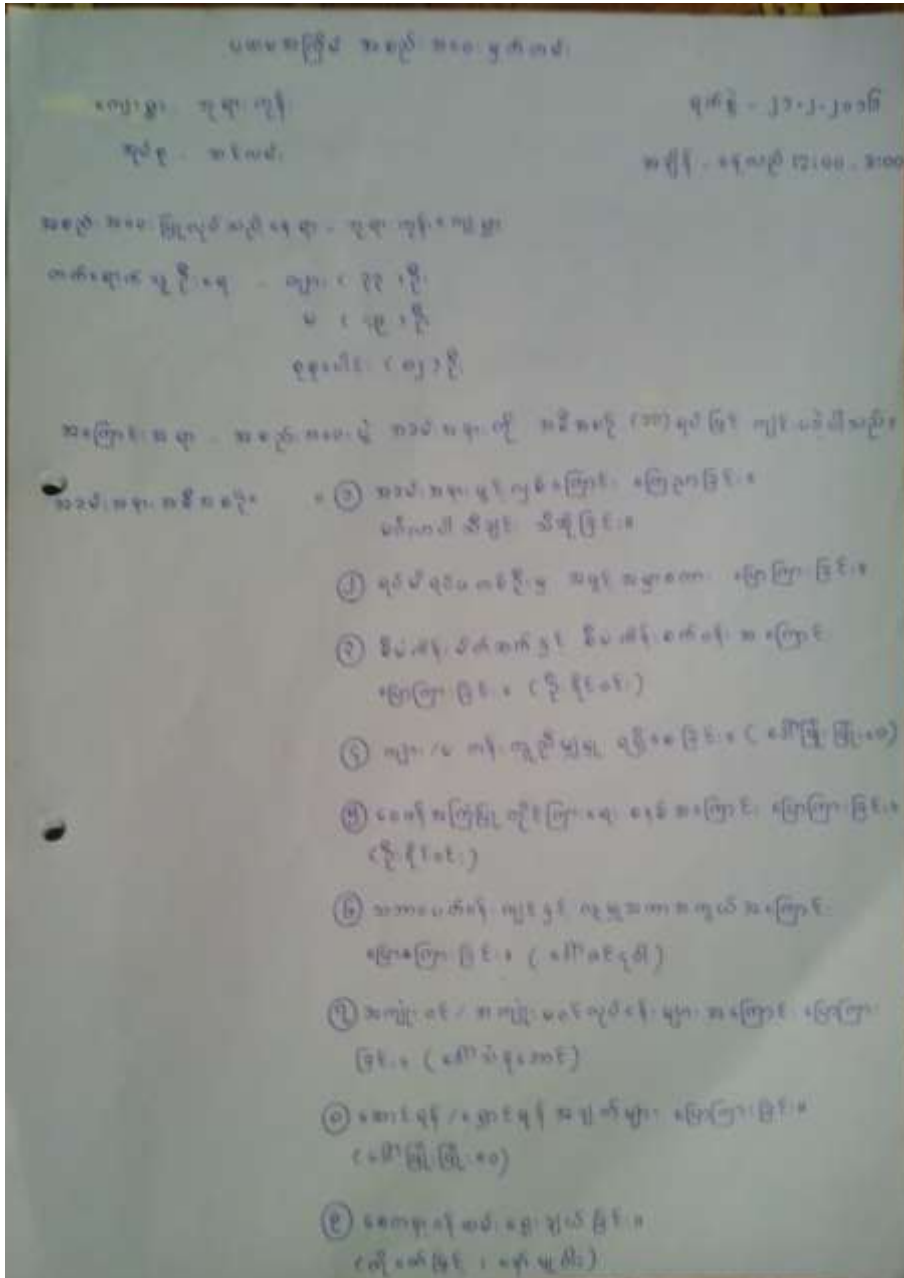 ပထမအကြိမ် အစည်းအဝေး မှတ်တမ်း
ကျေးရွာ - ဘုရားကုန်း
ရက်စွဲ - ၂၁-၂-၂၀၁၆
အုပ်စု -
အချိန် - နေ့လည် 12:00 - 3:00
အစည်းအဝေး ပြုလုပ်သည့်နေရာ - ဘုရားကုန်းကျေးရွာ
တက်ရောက်သူဦးရေ - ကျား ( ၃၃ ) ဦး
မ ( ၄၉ ) ဦး
စုစုပေါင်း ( ၈၂ ) ဦး
အကြောင်းအရာ - အစည်းအဝေးပွဲ အခမ်းအနားကို အစီအစဉ် (၁၁) ရပ်ဖြင့် ကျင်းပခဲ့ပါသည်။
အခမ်းအနားအစီအစဉ်။ ။ ① အခမ်းအနားဖွင့်လှစ်ကြောင်း ကြေညာခြင်း။
သီချင်း သီဆိုခြင်း။
② ရပ်မိရပ်ဖတစ်ဦးမှ အဖွင့်အမှာစကား ပြောကြားခြင်း။
③ စီမံကိန်းမိတ်ဆက်နှင့် စီမံကိန်းစက်ဝန်းအကြောင်း
ပြောကြားခြင်း။ (ဦးရဲဝင်း)
④ ကျား/မ တန်းတူညီမျှမှု ရရှိစေခြင်း။ (ဒေါ်ဖြိုးဖြိုးဝေ)
⑤ ဝေဖန်အကြံပြု တိုင်ကြားရေး စနစ်အကြောင်း ပြောကြားခြင်း။
(ဦးရဲဝင်း)
⑥ သဘာဝပတ်ဝန်းကျင်နှင့် လူမှုအကာအကွယ်အကြောင်း
ပြောကြားခြင်း။
⑦ အကျုံးဝင်/အကျုံးမဝင်လုပ်ငန်းများအကြောင်း ပြောကြား
ခြင်း။
⑧ ဆောင်ရန်/ရှောင်ရန် အချက်များ ပြောကြားခြင်း။
(ဒေါ်ဖြိုးဖြိုးဝေ)
⑨ စေတနာ့ဝန်ထမ်းရွေးချယ်ခြင်း။